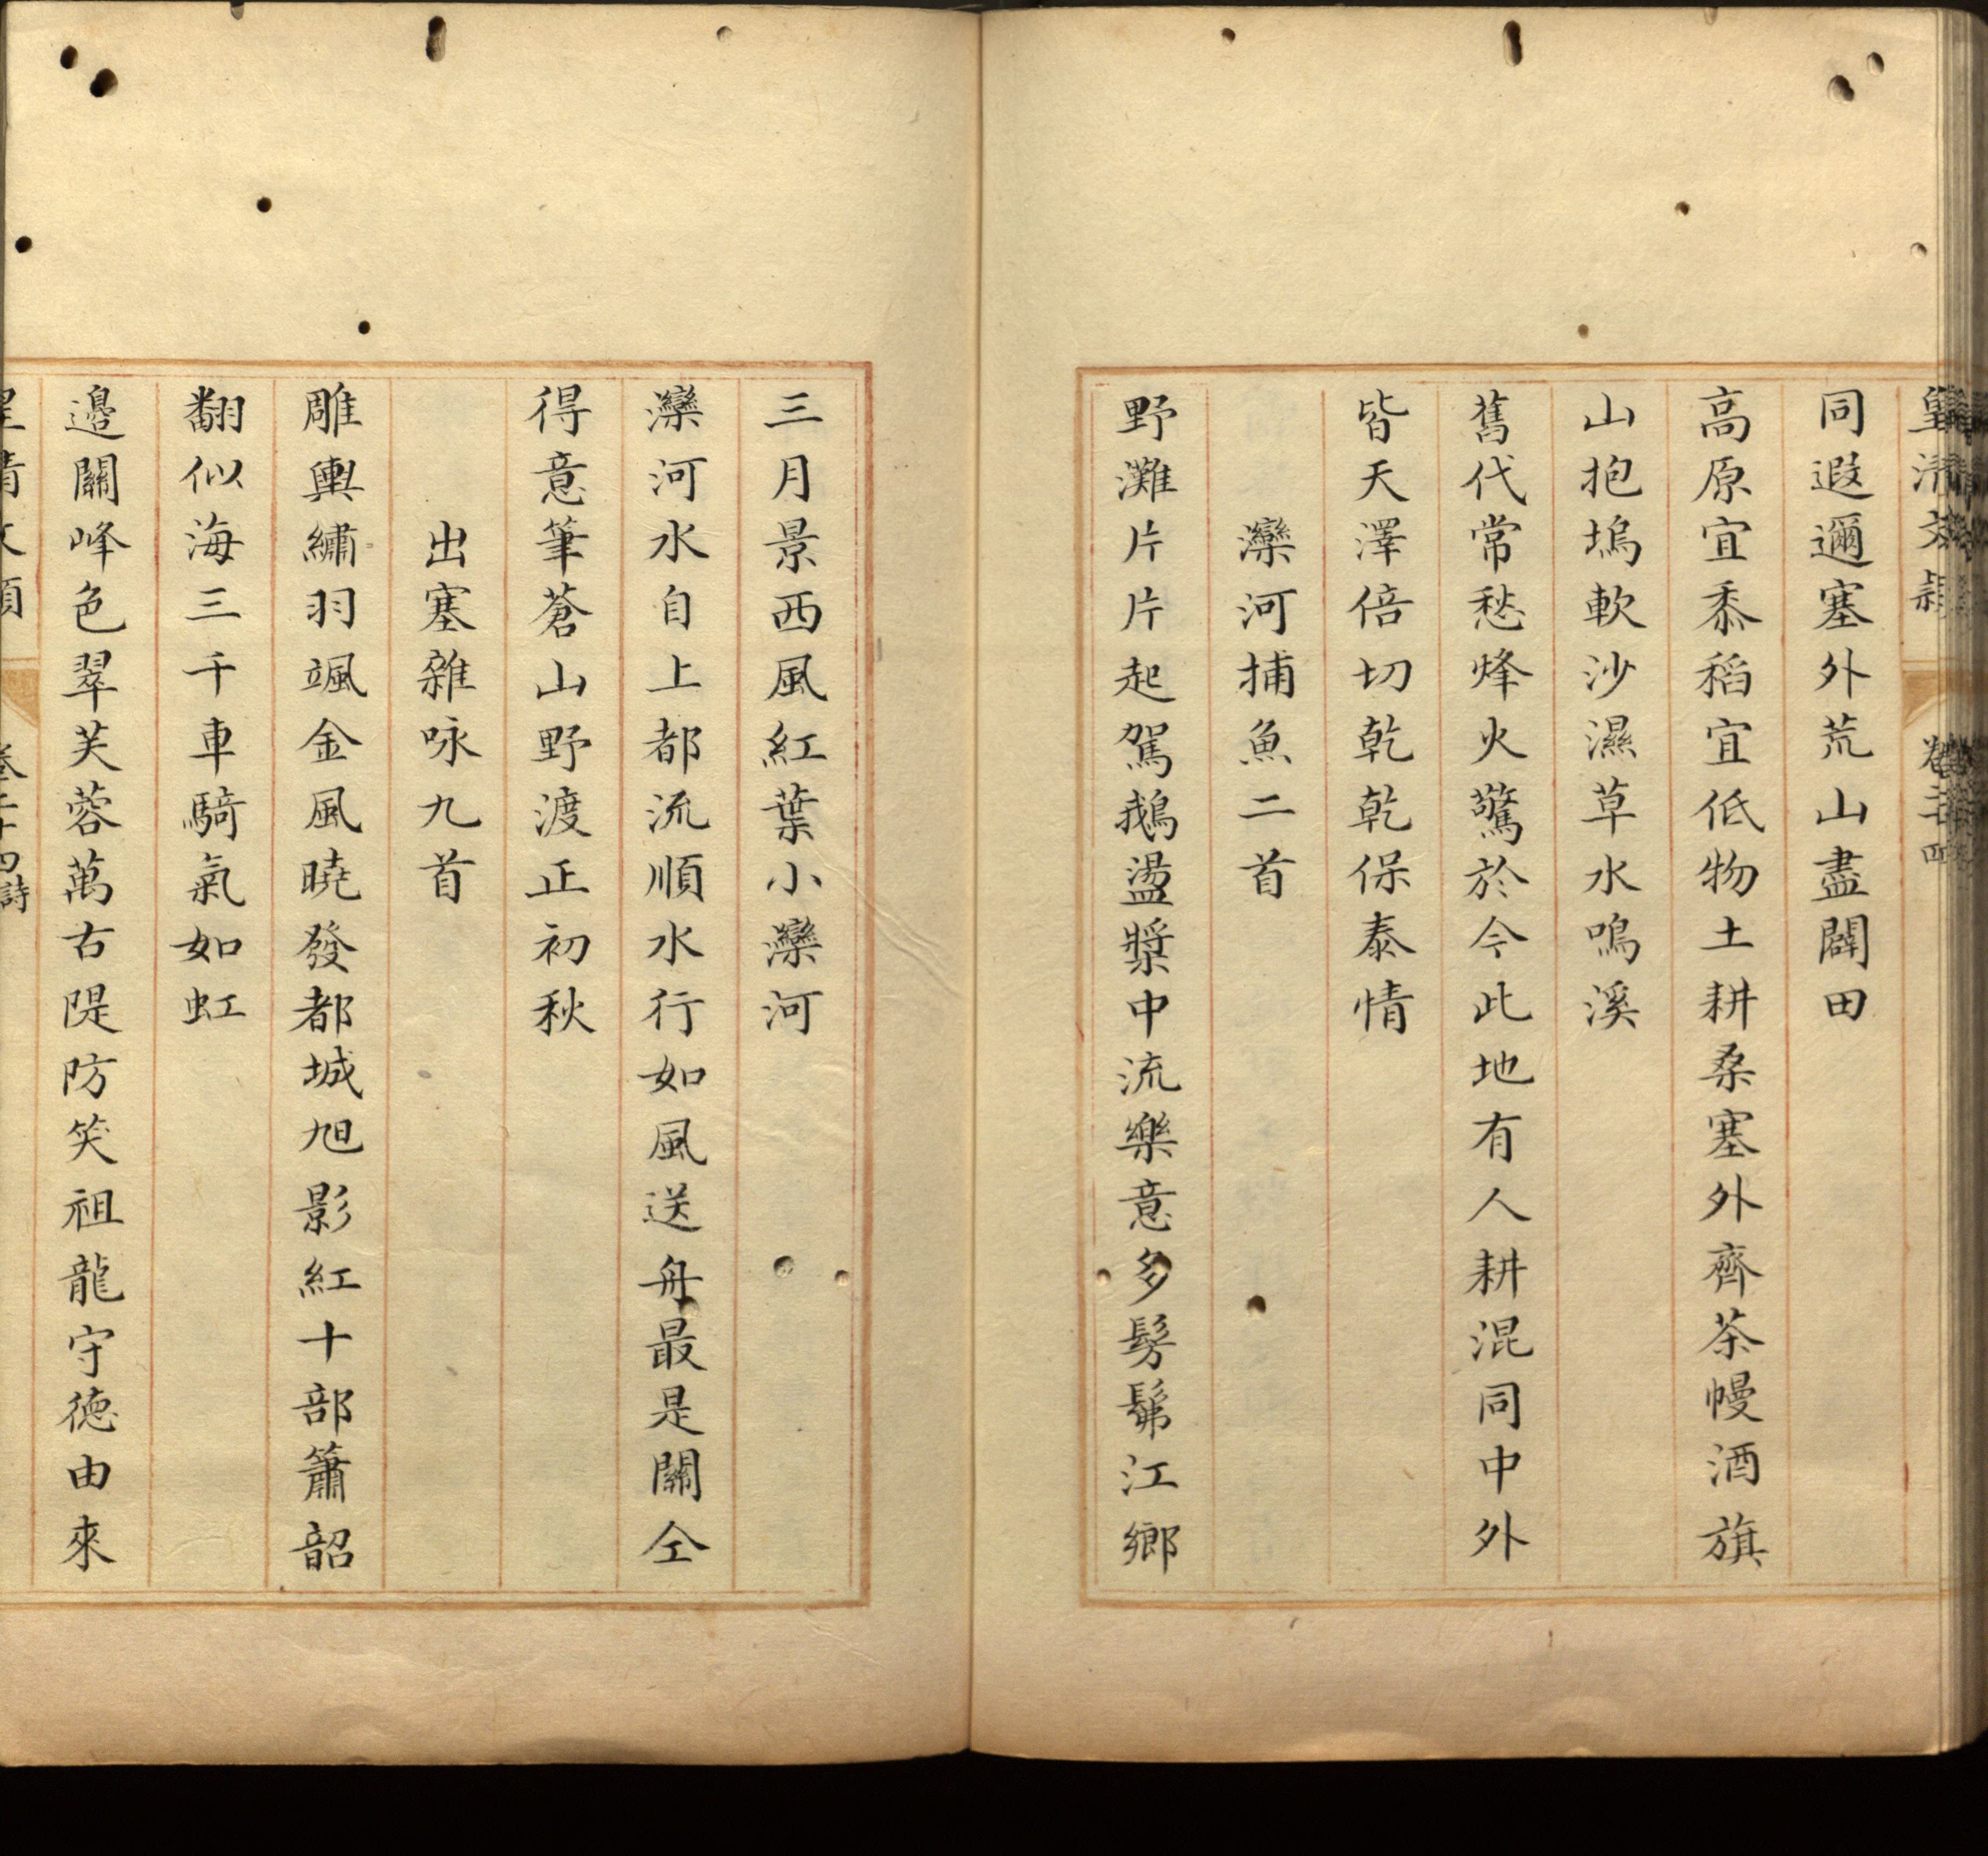 皇清文穎 卷二十四
同遐邇塞外荒山盡闢田
高原宜黍稻宜低物土耕桑塞外齊茶幔酒旗
山抱塢軟沙濕草水鳴溪
舊代常愁烽火驚於今此地有人耕混同中外
皆天澤倍切乾乾保泰情
灤河捕魚二首
野灘片片起駕鵝盪槳中流樂意多髣髴江鄉
三月景西風紅葉小灤河
灤河水自上都流順水行如風送舟最是關仝
得意筆蒼山野渡正初秋
出塞雜咏九首
雕輿繡羽颯金風曉發都城旭影紅十部簫韶
翻似海三千車騎氣如虹
邊關峰色翠芙蓉萬古隄防笑祖龍守德由來
皇清文穎 卷二十四詩